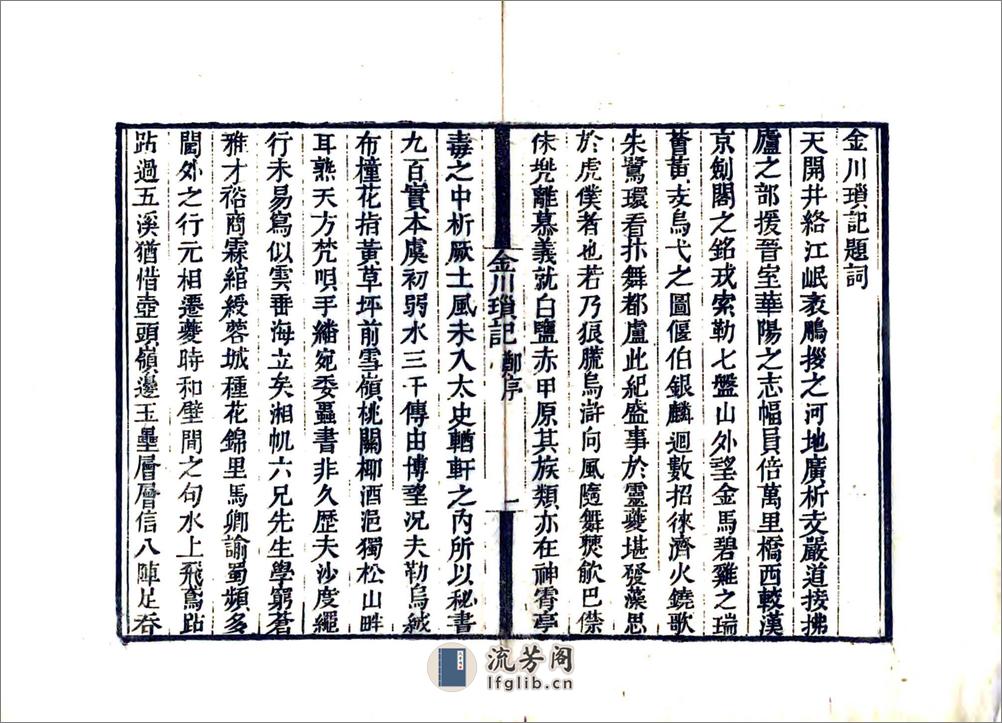 金川瑣記題詞
天開井絡江岷袤鵬拶之河地廣析支嚴道接拂
廬之部援晉室華陽之志幅員倍萬里橋西較漢
京劍閣之銘戎索勒七盤山外望金馬碧雞之瑞
薈黃支烏弋之圖偃伯銀麟迴數招徠濟火鐃歌
朱鷺環看抃舞都盧此紀盛事於靈夔堪發藻思
於虎僕者也若乃狼𦡱烏滸向風隨舞僰歈巴僸
侏兠離慕義就白鹽赤甲原其族類亦在神霄亭
毒之中析厥土風未入太史輶軒之內所以秘書
九百實本虞初弱水三千傳由博望況夫勒烏緘
布橦花指黃草坪前雪嶺桃關椰酒浥獨松山畔
耳熟天方梵唄手繙宛委蟲書非久歷夫沙度繩
行未易寫似雲垂海立矣湘帆六兄先生學窮蒼
雅才裕商霖綰綬蓉城種花錦里馬卿諭蜀頻多
閫外之行元相遷夔時和壁間之句水上飛鳶跕
跕過五溪猶惜壺頭嶺邊玉壘層層信八陣足吞
金川瑣記
鄭序
一
流芳阁
lfglib.cn